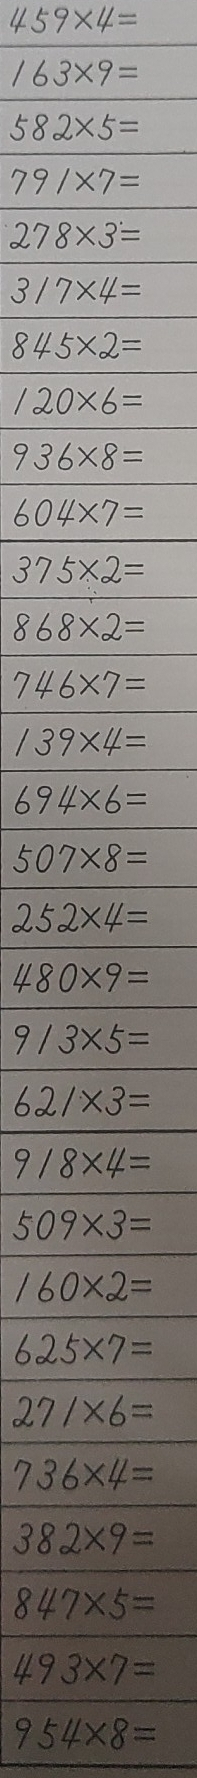 459×4=
163×9=
582×5=
791×7=
278×3=
317×4=
845×2=
120×6=
936×8=
604×7=
375×2=
868×2=
746×7=
139×4=
694×6=
507×8=
252×4=
480×9=
913×5=
621×3=
918×4=
509×3=
160×2=
625×7=
271×6=
736×4=
382×9=
847×5=
493×7=
954×8=